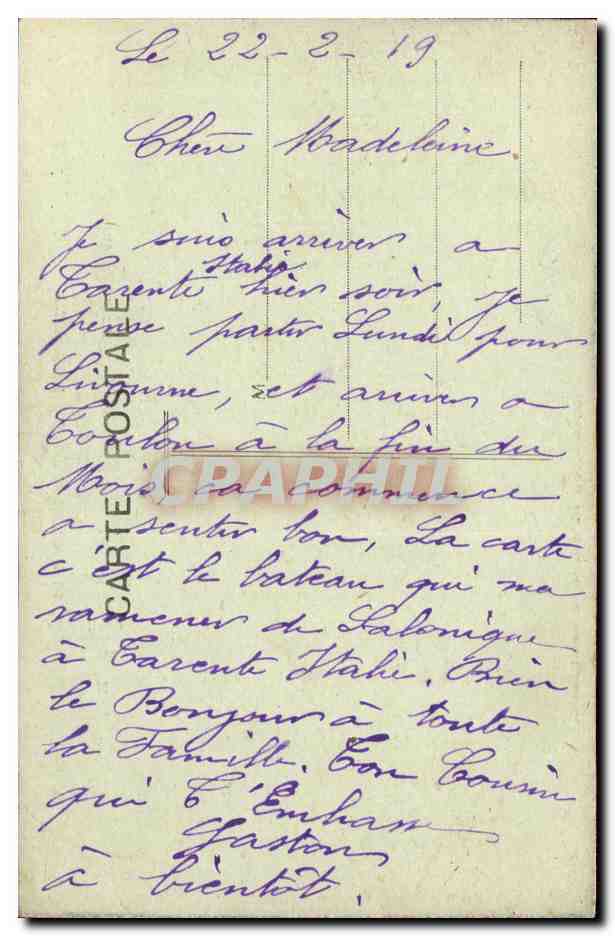 Le 22-2-19
Chère Madeleine
Je suis arriver a
Tarente Italie hier soir, je
pense partir Lundi pour
Livourne, et arriver a
Toulon à la fin du
Mois, ca commence
a sentir bon, La carte
c'est le bateau qui ma
ramener de Salonique
à Tarente Italie. Bien
le Bonjour à toute
la Famille. Ton Cousin
qui T'Embrasse
Gaston
à bientôt.
CARTE POSTALE
M
CPAPHIL